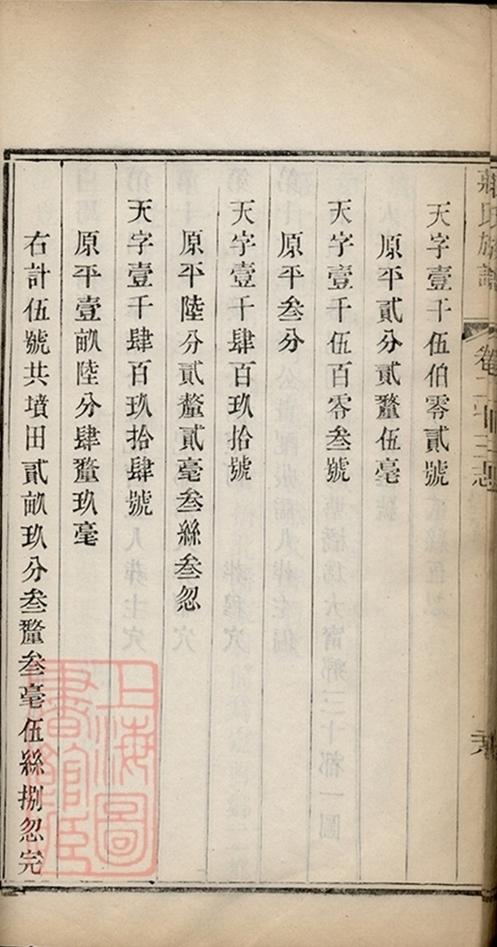 天字壹千伍伯零貳號
原平貳分貳釐伍毫
天字壹千伍百零叁號
原平叁分
天字壹千肆百玖拾號
原平陸分貳釐貳毫叁絲叁忽
天字壹千肆百玖拾肆號
原平壹畝陸分肆釐玖毫
右計伍號共墳田貳畝玖分叁釐叁毫伍絲捌忽完
上海圖
書館藏